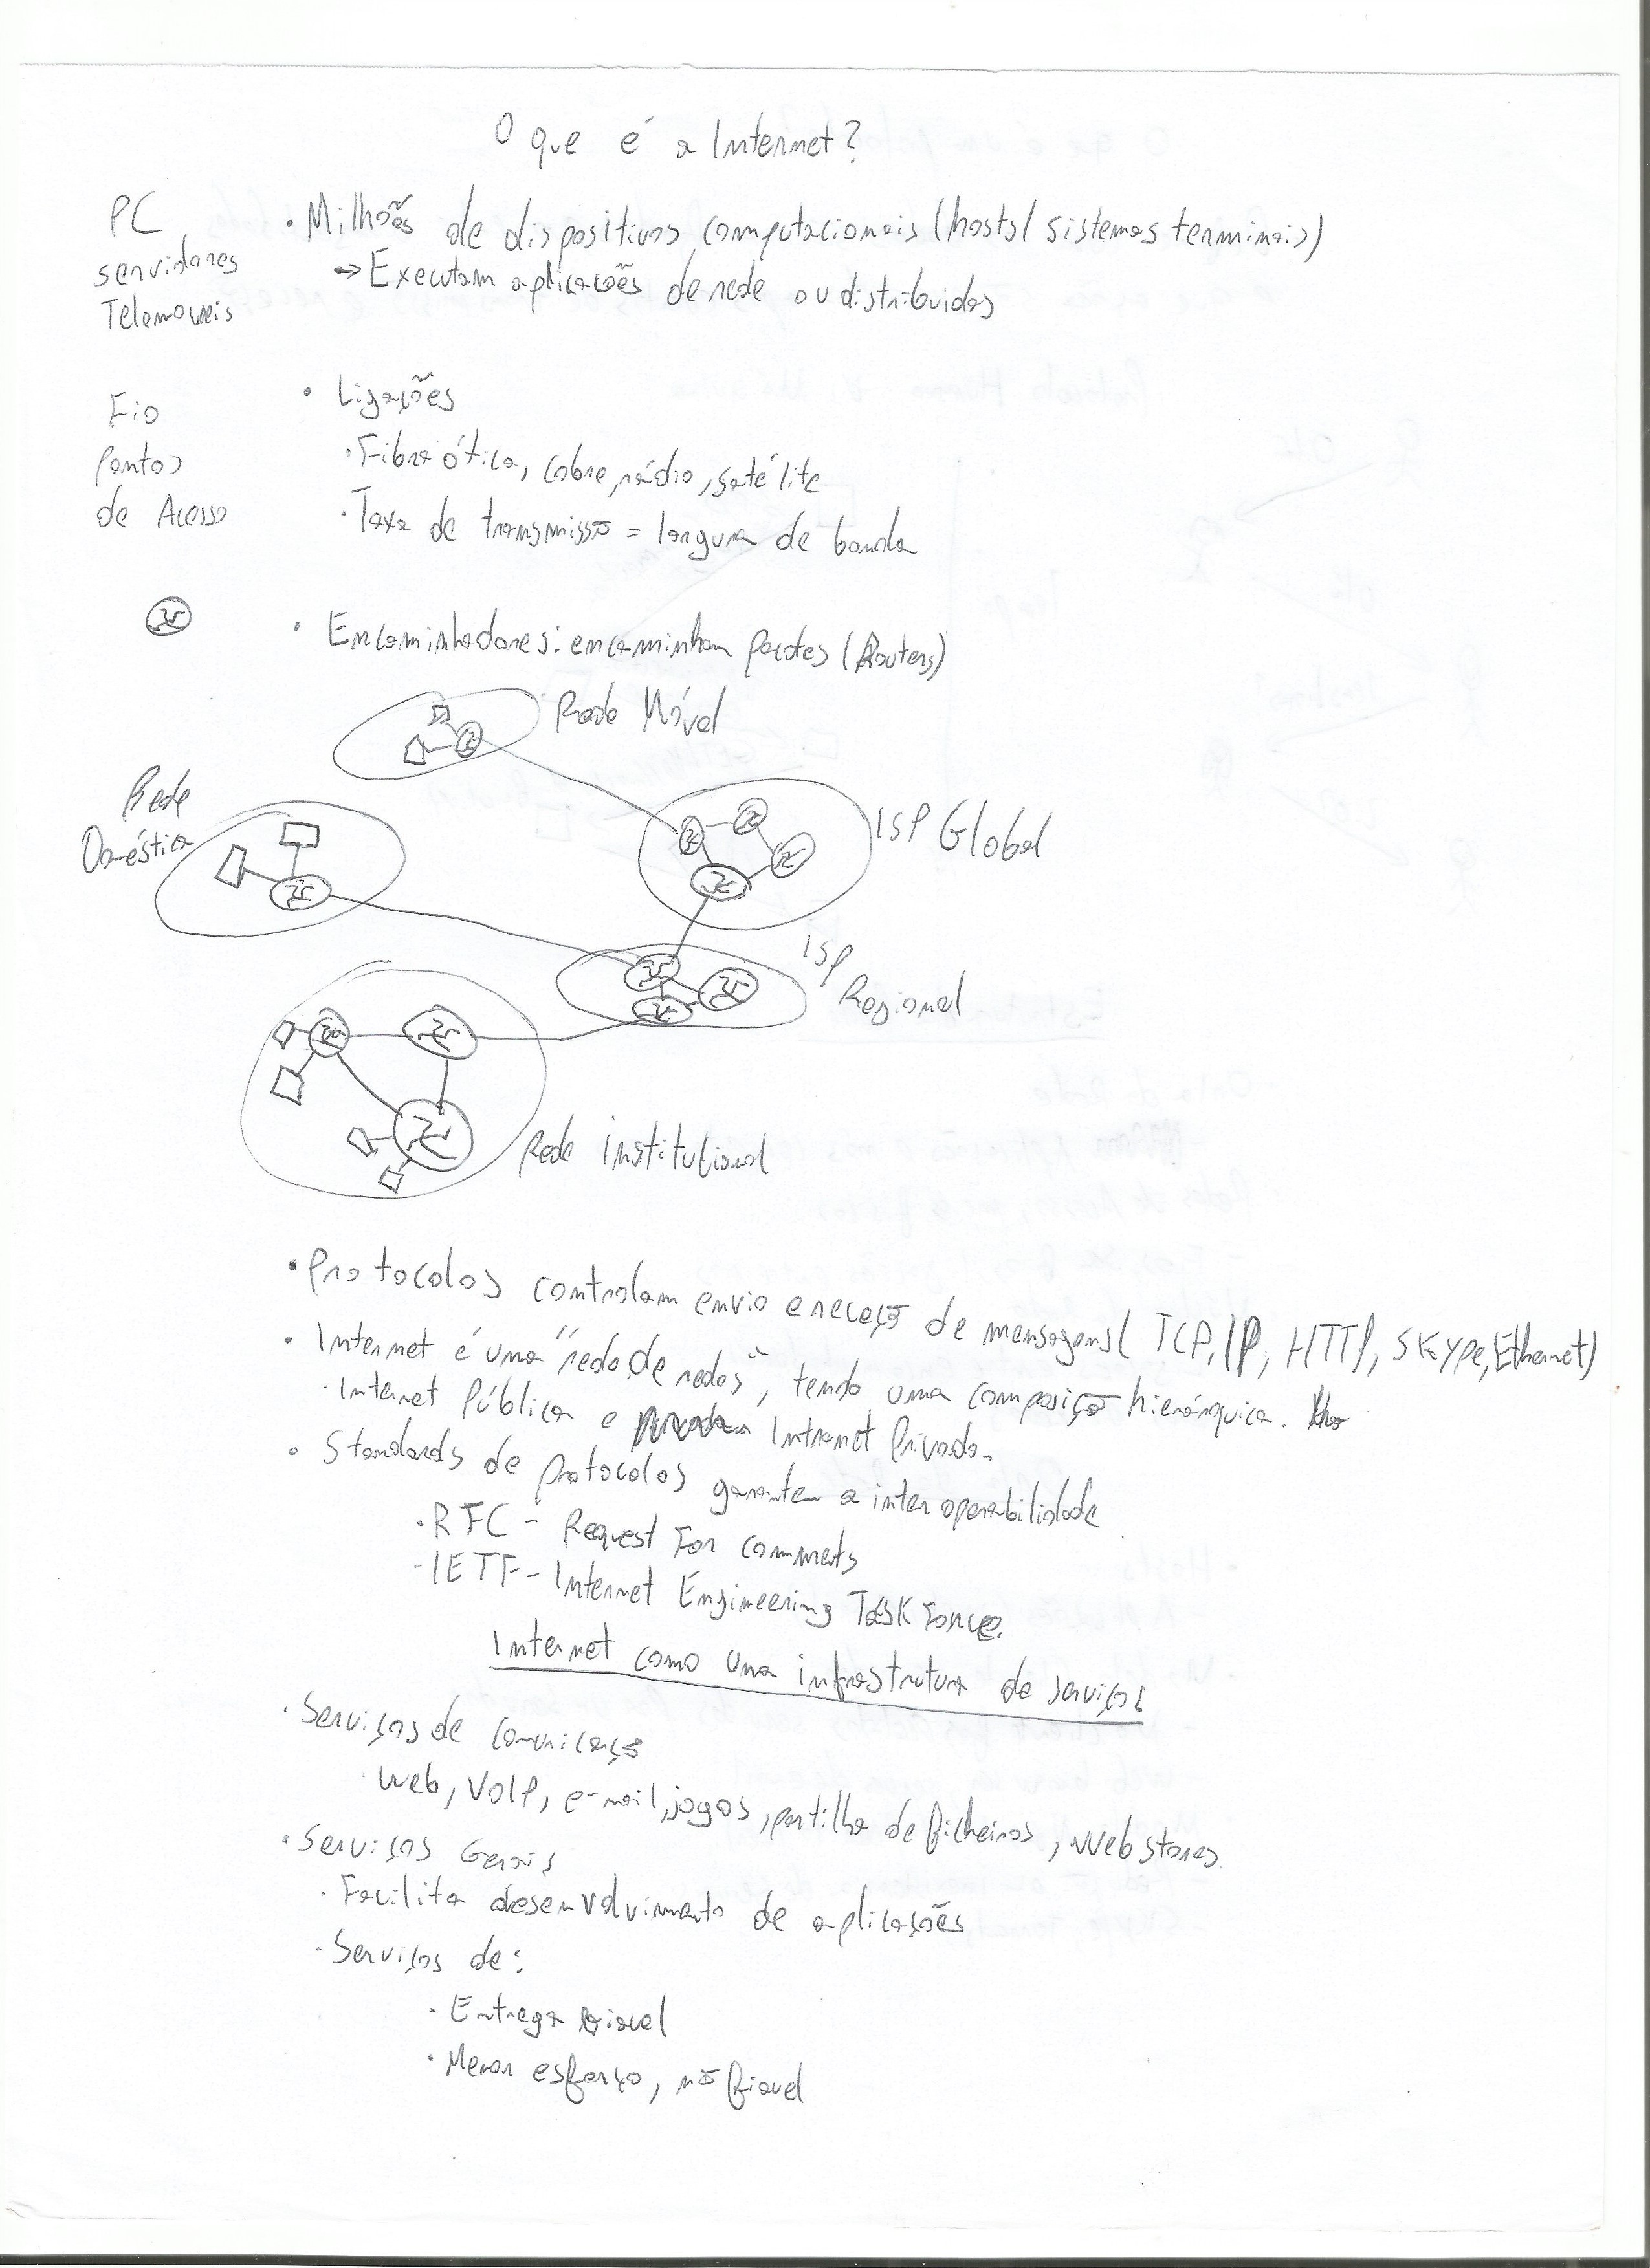 O que é a Internet?
PC
servidores
Telemoveis
• Milhões de dispositivos computacionais (hosts/sistemas terminais)
→ Executam aplicações de rede ou distribuidas
Fio
Pontos
de Acesso
• Ligações
• Fibra ótica, cobre, rádio, satélite
• Taxa de transmissão = largura de banda
• Encaminhadores: encaminham pacotes (Routers)
Rede Móvel
Rede
Doméstica
ISP Global
ISP
Regional
Rede institucional
• Protocolos controlam envio e receção de mensagens (TCP, IP, HTTP, SKype, Ethernet)
• Internet é uma "rede de redes", tendo uma composição hierárquica.
• Internet Pública e Intranet Privada.
• Standards de protocolos garantem a interoperabilidade
• RFC - Request For comments
- IETF - Internet Engineering Task Force.
Internet como uma infrastrutura de serviços
• Serviços de Comunicação
• Web, VoIP, e-mail, jogos, partilha de ficheiros, Web stores.
• Serviços Gerais
• Facilita desenvolvimento de aplicações
• Serviços de:
• Entrega fiavel
• Menor esforço, não fiavel